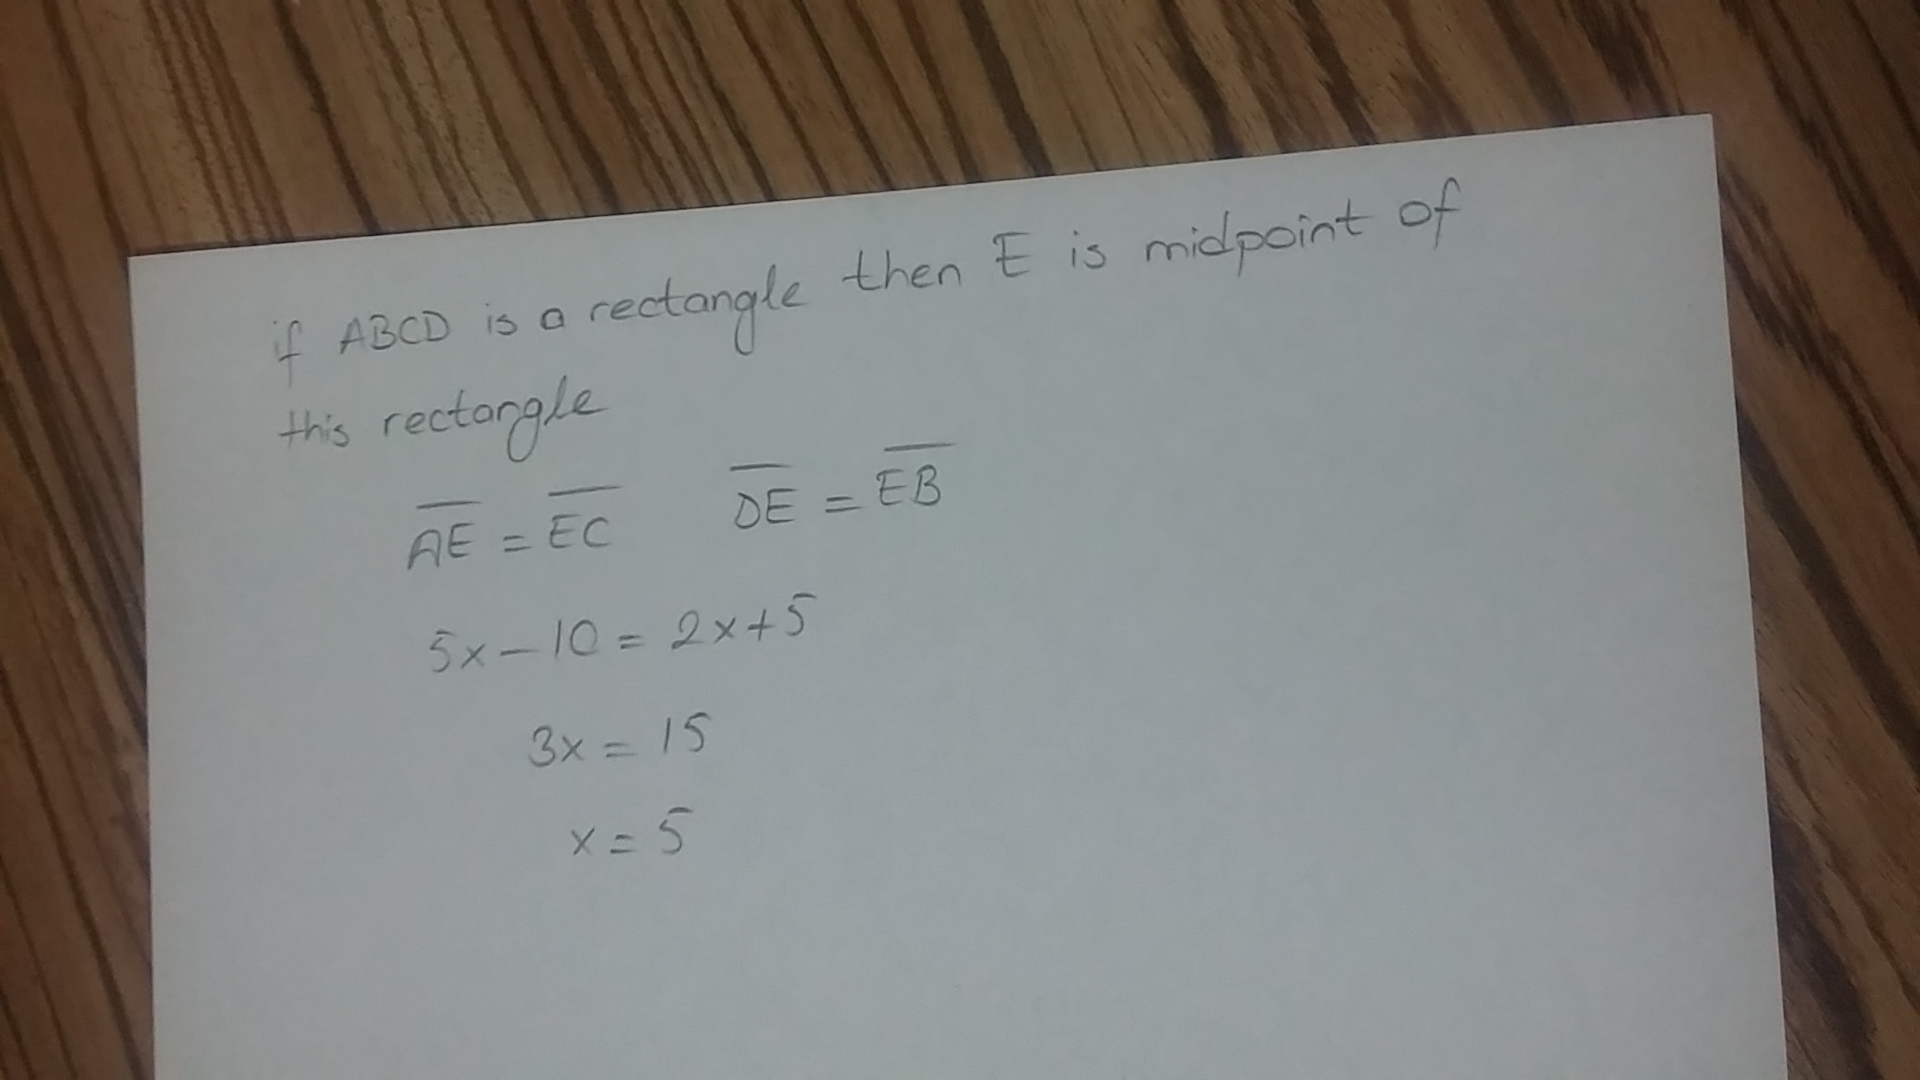 if ABCD is a rectangle then E is midpoint of
this rectangle
A̅E̅ = E̅C̅ D̅E̅ = E̅B̅
5x - 10 = 2x + 5
3x = 15
x = 5